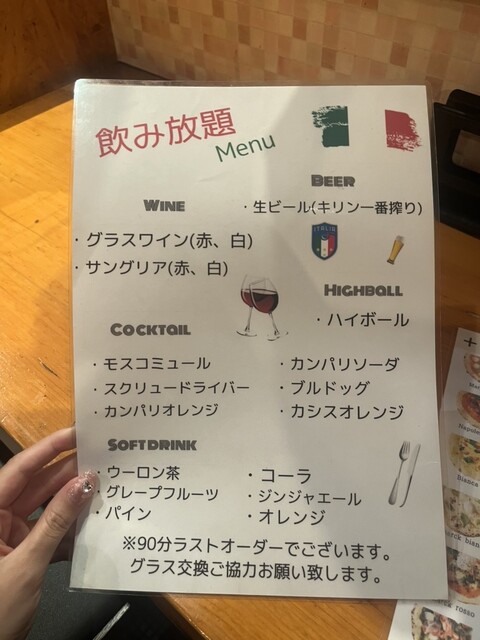 飲み放題
Menu
BEER
・生ビール(キリン一番搾り)
ITALIA
WINE
・グラスワイン(赤、白)
・サングリア(赤、白)
HIGHBALL
・ハイボール
COCKTAIL
・モスコミュール
・スクリュードライバー
・カンパリオレンジ
・カンパリソーダ
・ブルドッグ
・カシスオレンジ
SOFT DRINK
・ウーロン茶
・グレープフルーツ
・パイン
・コーラ
・ジンジャエール
・オレンジ
※90分ラストオーダーでございます。
グラス交換ご協力お願い致します。
+
Bianca
rosso